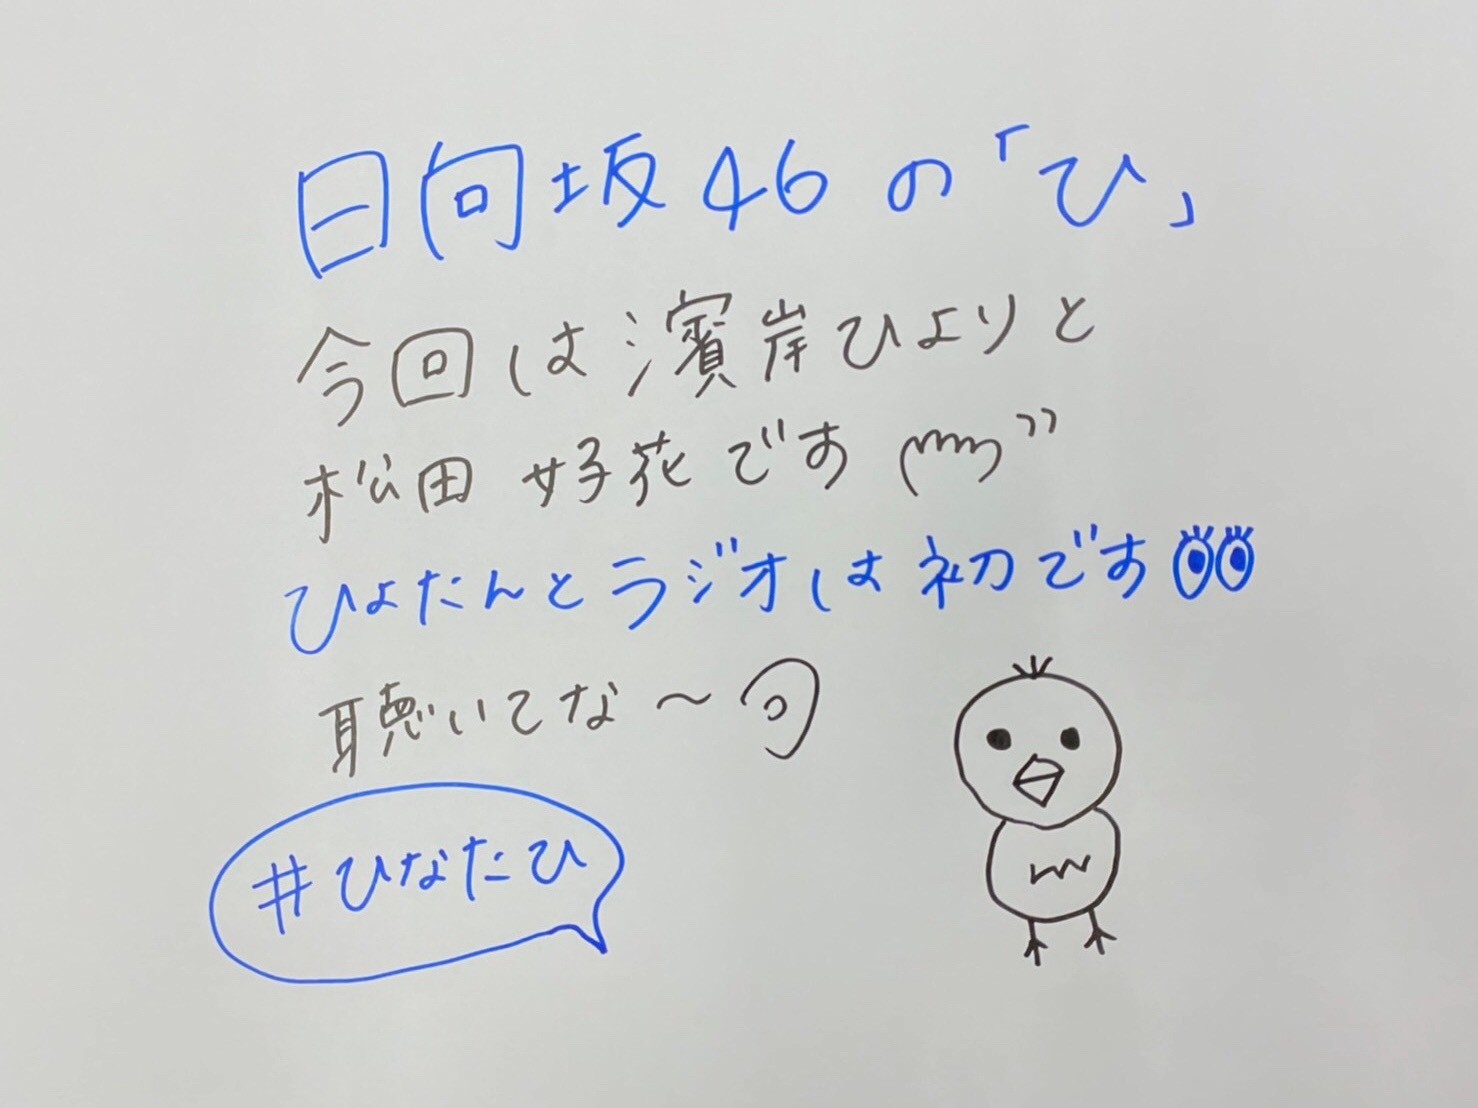 日向坂46の「ひ」
今回は濱岸ひよりと
松田好花です
ひよたんとラジオは初です
聴いてな〜
#ひなたひ